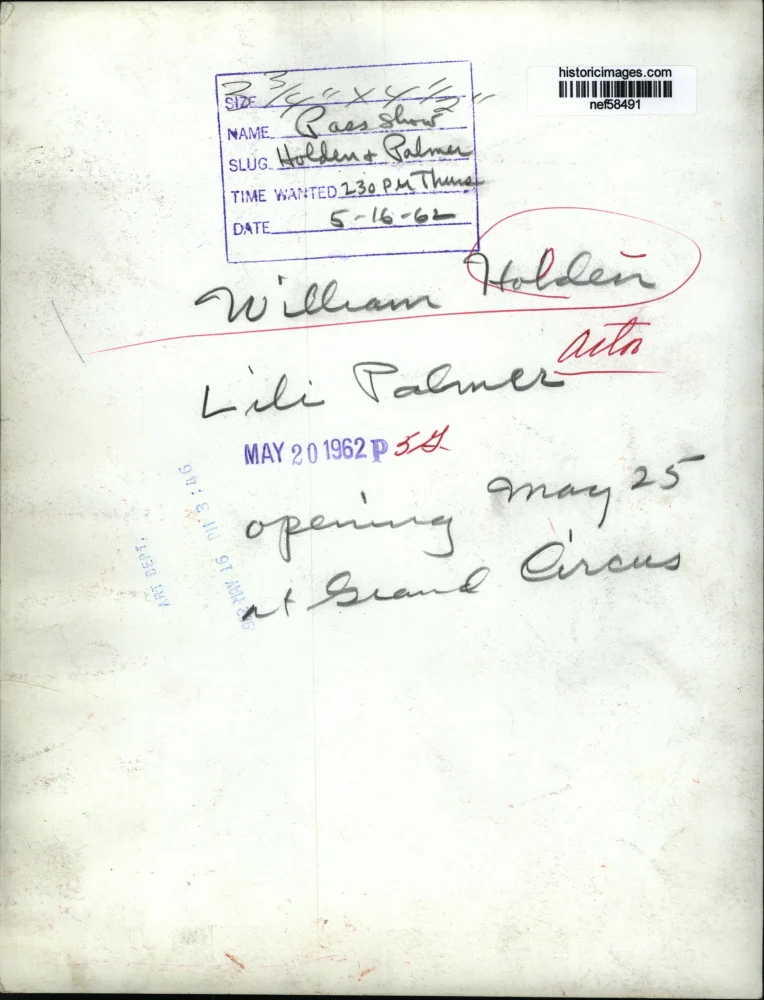 historicimages.com
nef58491
SIZE 3 3/4" x 4 1/2"
NAME Pass Show
SLUG Holden & Palmer
TIME WANTED 2 30 PM Thurs
DATE 5-16-62
William Holden
actor
Lili Palmer
MAY 20 1962 P 5G
opening May 25
at Grand Circus
ART DEPT.
MAY 15 PM 3:46